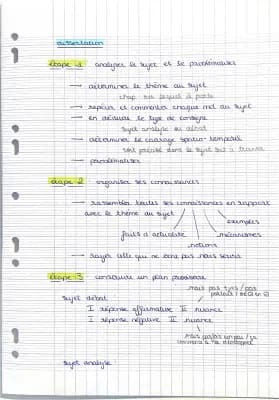 dissertation
étape 1 analyser le sujet et le problématiser
→ déterminer le thème du sujet
chap. sur lequel il porte
→ repérer et commenter chaque mot du sujet
→ en déduire le type de consigne
sujet analyse ou débat
→ déterminer le cadrage spatio-temporel
soit précisé dans le sujet soit à trouver
→ problématiser
étape 2 organiser ses connaissances
→ rassembler toutes ses connaissances en rapport
avec le thème du sujet
exemples
faits d'actualité mécanismes
notions
→ rayer celle qui ne sont pas nous servir
étape 3 construire un plan
mais pas tjrs / pas
sujet débat
I réponse affirmative II nuance
I réponse négative II nuance
mais parfois un peu
sujet analyse :